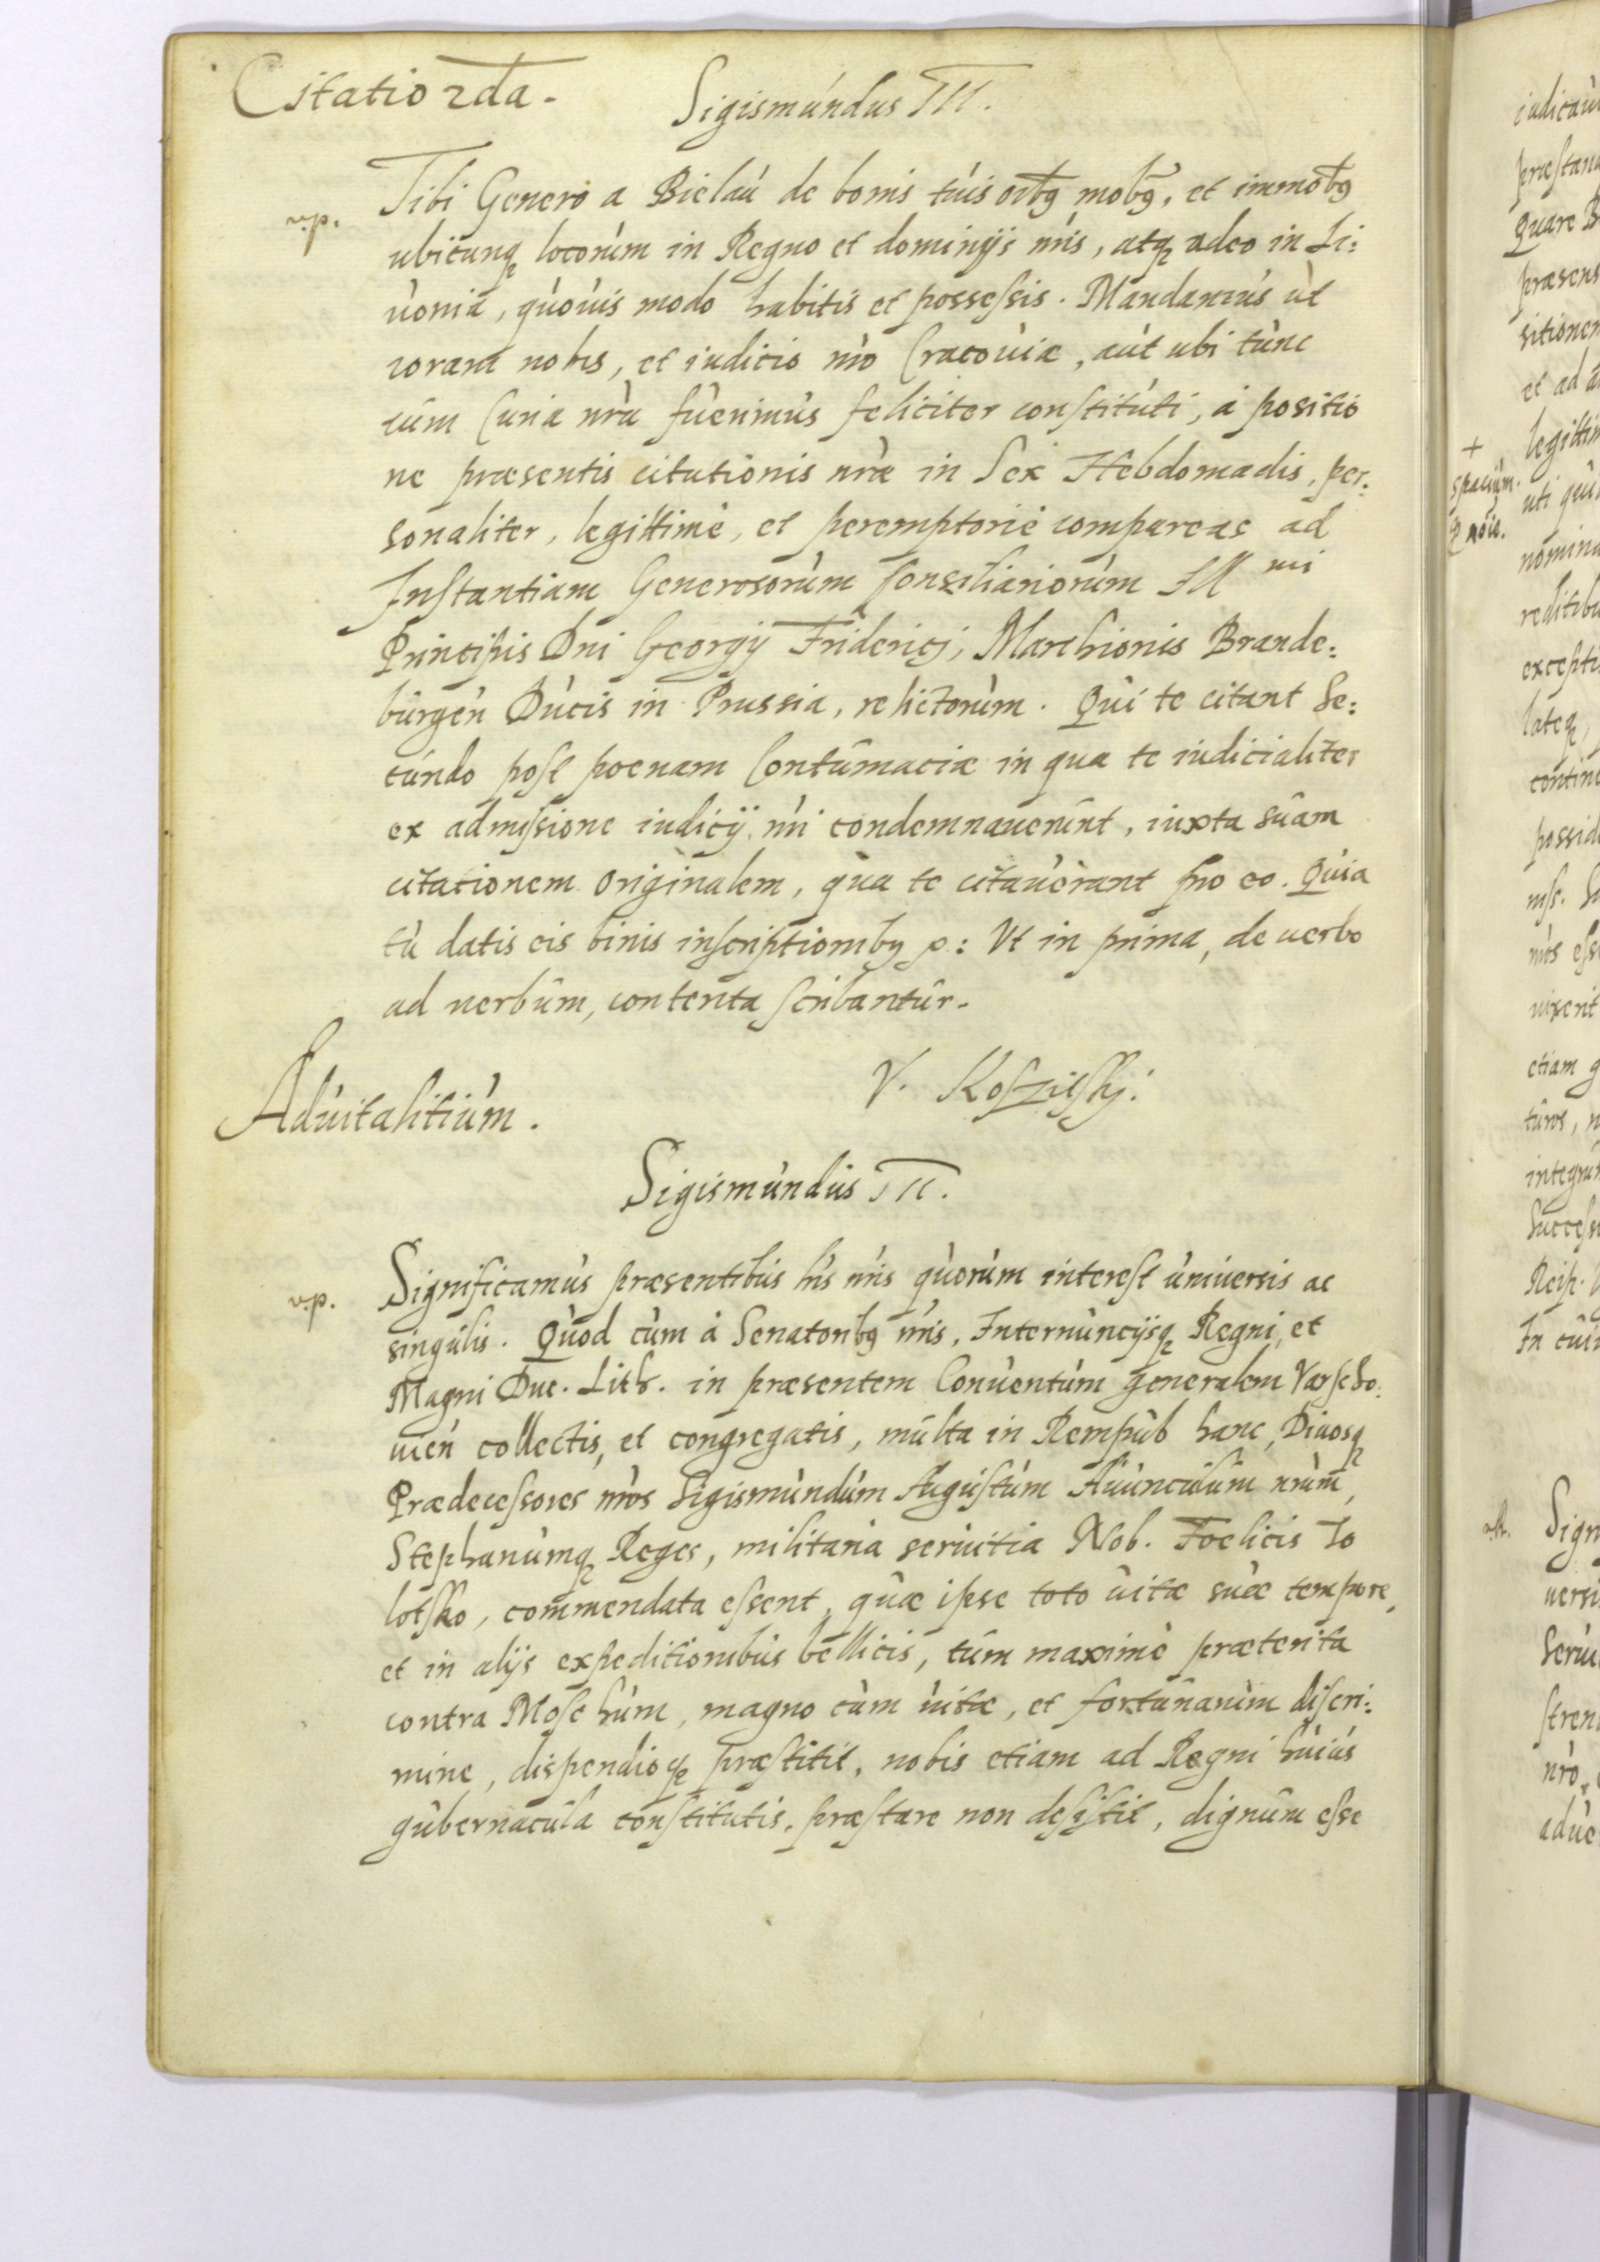 Citatio 2da.
Sigismundus III.
v.p.
Tibi Genero a Bielau de bonis tuis oībꝫ mobꝫ, et immobꝫ
ubicunqꝫ locorum in Regno et dominijs nris, atqꝫ adeo in Li:
uonia, quouis modo habitis et possessis. Mandamus ut
coram nobis, et iudicio nro Cracouiæ, aut ubi tunc
cum Curia nra fuerimus feliciter constituti, à positio
ne præsentis citationis nræ in Sex Hebdomadis, per:
sonaliter, legittimè, et peremptoriè compareas ad
Instantiam Generosorum Consiliariorum Ill mi
Principis Dni Georgij Friderici, Marchionis Brande:
burgen Ducis in Prussia, relictorum. Qui te citant Se:
cundo post poenam Contumaciæ in qua te iudicialiter
ex admissione iudicij nri condemnauerunt, iuxta suam
citationem originalem, qua te citauerant pro eo. Quia
tu datis eis binis inscriptionibꝫ p: Vt in prima, de uerbo
ad uerbum, contenta scribantur.
V.
Aduitalitium.
Sigismundus III.
v.p.
Significamus præsentibus his nris quorum interest uniuersis ac
singulis. Quod cum à Senatoribꝫ nris, Internuncijsqꝫ Regni, et
Magni Duc. Lith. in præsentem Conuentum generalem Varscho:
uien collectis, et congregatis, multa in Rempub hanc, Diuosqꝫ
Prædecessores nros Sigismundum Augustum Auunculum nrum,
Stephanumqꝫ Reges, militaria seruitia Nob. Foelicis To
lotsko, commendata essent, quæ ipse toto uitæ suæ tempore,
et in alijs expeditionibus bellicis, tum maximè præterita
contra Moschum, magno cum uitæ, et fortunarum discri:
mine, dispendioqꝫ præstitit, nobis etiam ad Regni huius
gubernacula constitutis, præstare non desistit, dignum esse
+
spacium.
iudicau
præstan
Quare
præsens
sitionem
et ad
legittim
uti qui
nomin
reditibu
excepti
lateqꝫ,
contine
possid
nris ess
uixerit
etiam
turos,
integru
Success
Reip.
In cui
Sign
uersi
Serui
stren
nro
adue